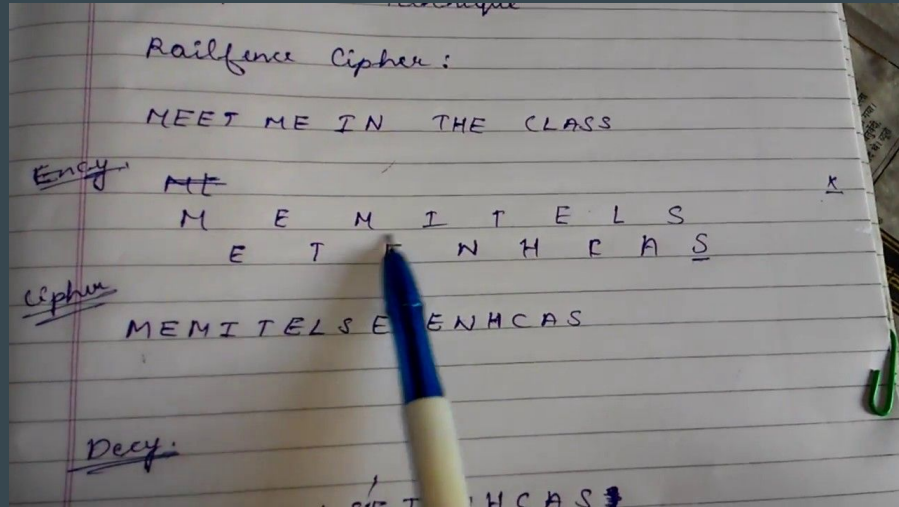 Technique
Railfence Cipher:
MEET ME IN THE CLASS
Ency.
ME
x
M E M I T E L S
E T E N H C A S
Cipher
MEMITELSE ENHCAS
Decy.
HCAS